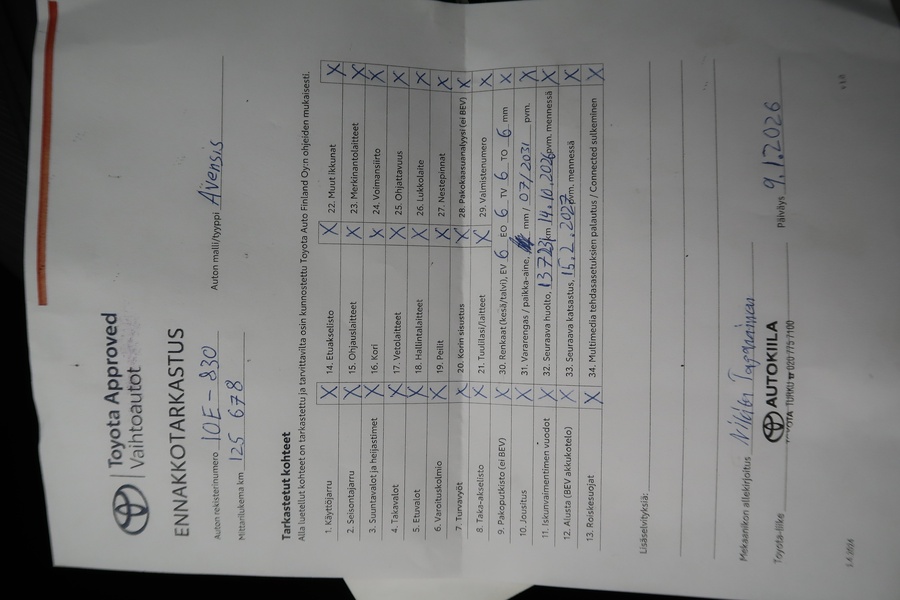 Toyota Approved
Vaihtoautot
ENNAKKOTARKASTUS
Auton rekisterinumero IOE-830 Auton malli/tyyppi Avensis
Mittarilukema km 125 678
Tarkastetut kohteet
Alla luetellut kohteet on tarkastettu ja tarvittavilta osin kunnostettu Toyota Auto Finland Oy:n ohjeiden mukaisesti.
1. Käyttöjarru X 14. Etuakselisto X 22. Muut ikkunat X
2. Seisontajarru X 15. Ohjauslaitteet X 23. Merkinantolaitteet X
3. Suuntavalot ja heijastimet X 16. Kori X 24. Voimansiirto X
4. Takavalot X 17. Vetolaitteet X 25. Ohjattavuus X
5. Etuvalot X 18. Hallintalaitteet X 26. Lukkolaite X
6. Varoituskolmio X 19. Peilit X 27. Nestepinnat X
7. Turvavyöt X 20. Korin sisustus X 28. Pakokaasuanalyysi (ei BEV) X
8. Taka-akselisto X 21. Tuulilasi/laitteet X 29. Valmistenumero X
9. Pakoputkisto (ei BEV) X 30. Renkaat (kesä/talvi), EV 6 EO 6 TV 6 TO 6 mm X
10. Jousitus X 31. Vararengas / paikka-aine, mm / 07/2031 pvm. X
11. Iskunvaimentimen vuodot X 32. Seuraava huolto, km 14.10.2026 pvm. mennessä X
12. Alusta (BEV akkukotelo) X 33. Seuraava katsastus, 15.2.2027 pvm. mennessä X
13. Roiskesuojat X 34. Multimedia tehdasasetuksien palautus / Connected sulkeminen X
Lisäselvityksiä:
Mekaanikon allekirjoitus Päiväys 9.1.2026
Toyota-liike AUTOKIILA
TOYOTA TURKU ☎ 020 775 7100